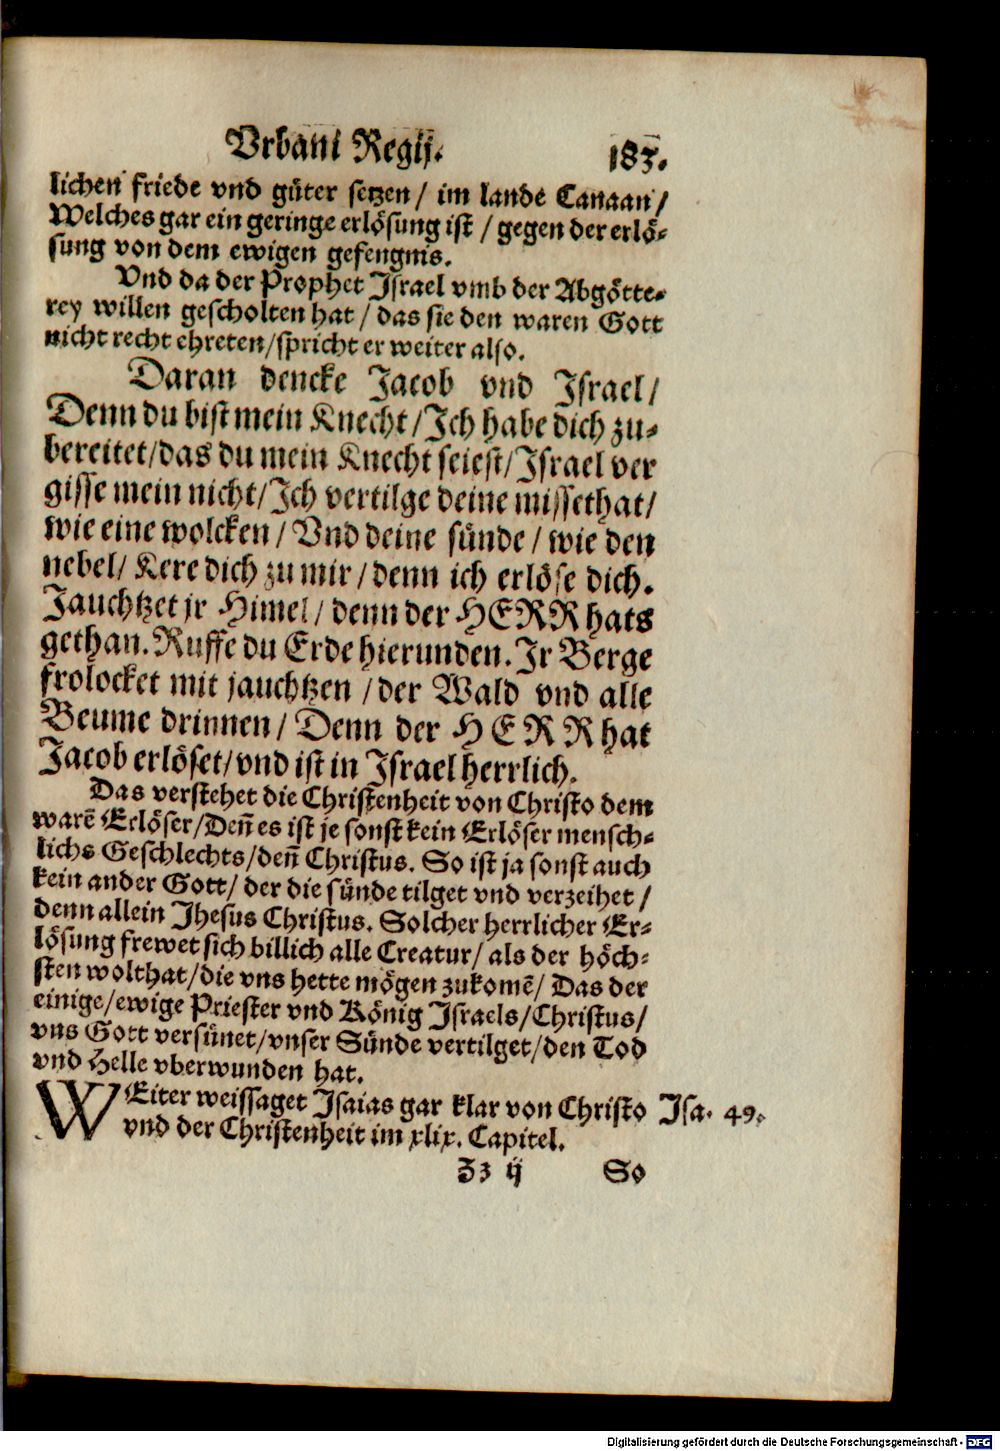 Vrbani Regij. 183.
lichen friede vnd güter setzen / im lande Canaan /
Welches gar ein geringe erlösung ist / gegen der erlö-
sung von dem ewigen gefengnis.
Vnd da der Prophet Israel vmb der Abgötte-
rey willen gescholten hat / das sie den waren Gott
nicht recht ehreten/spricht er weiter also.
Daran dencke Jacob vnd Israel/
Denn du bist mein Knecht/Ich habe dich zu-
bereitet/das du mein Knecht seiest/Israel ver
gisse mein nicht/Ich vertilge deine missethat/
wie eine wolcken / Vnd deine sünde / wie den
nebel/ Kere dich zu mir / denn ich erlöse dich.
Jauchtzet jr Himel / denn der HERR hats
gethan. Ruffe du Erde hierunden. Jr Berge
frolocket mit jauchtzen / der Wald vnd alle
Beume drinnen / Denn der HERR hat
Jacob erlöset/vnd ist in Israel herrlich.
Das verstehet die Christenheit von Christo dem
warē Erlöser/Deñ es ist je sonst kein Erlöser mensch-
lichs Geschlechts/deñ Christus. So ist ja sonst auch
kein ander Gott/ der die sünde tilget vnd verzeihet /
denn allein Jhesus Christus. Solcher herrlicher Er-
lösung frewet sich billich alle Creatur/ als der höch-
sten wolthat/die vns hette mögen zukomē/ Das der
einige/ewige Priester vnd König Israels/Christus/
vns Gott versünet/vnser Sünde vertilget/den Tod
vnd Helle vberwunden hat.
WEiter weissaget Isaias gar klar von Christo Isa. 49.
vnd der Christenheit im xlix. Capitel.
Zz ij So
Digitalisierung gefördert durch die Deutsche Forschungsgemeinschaft - DFG